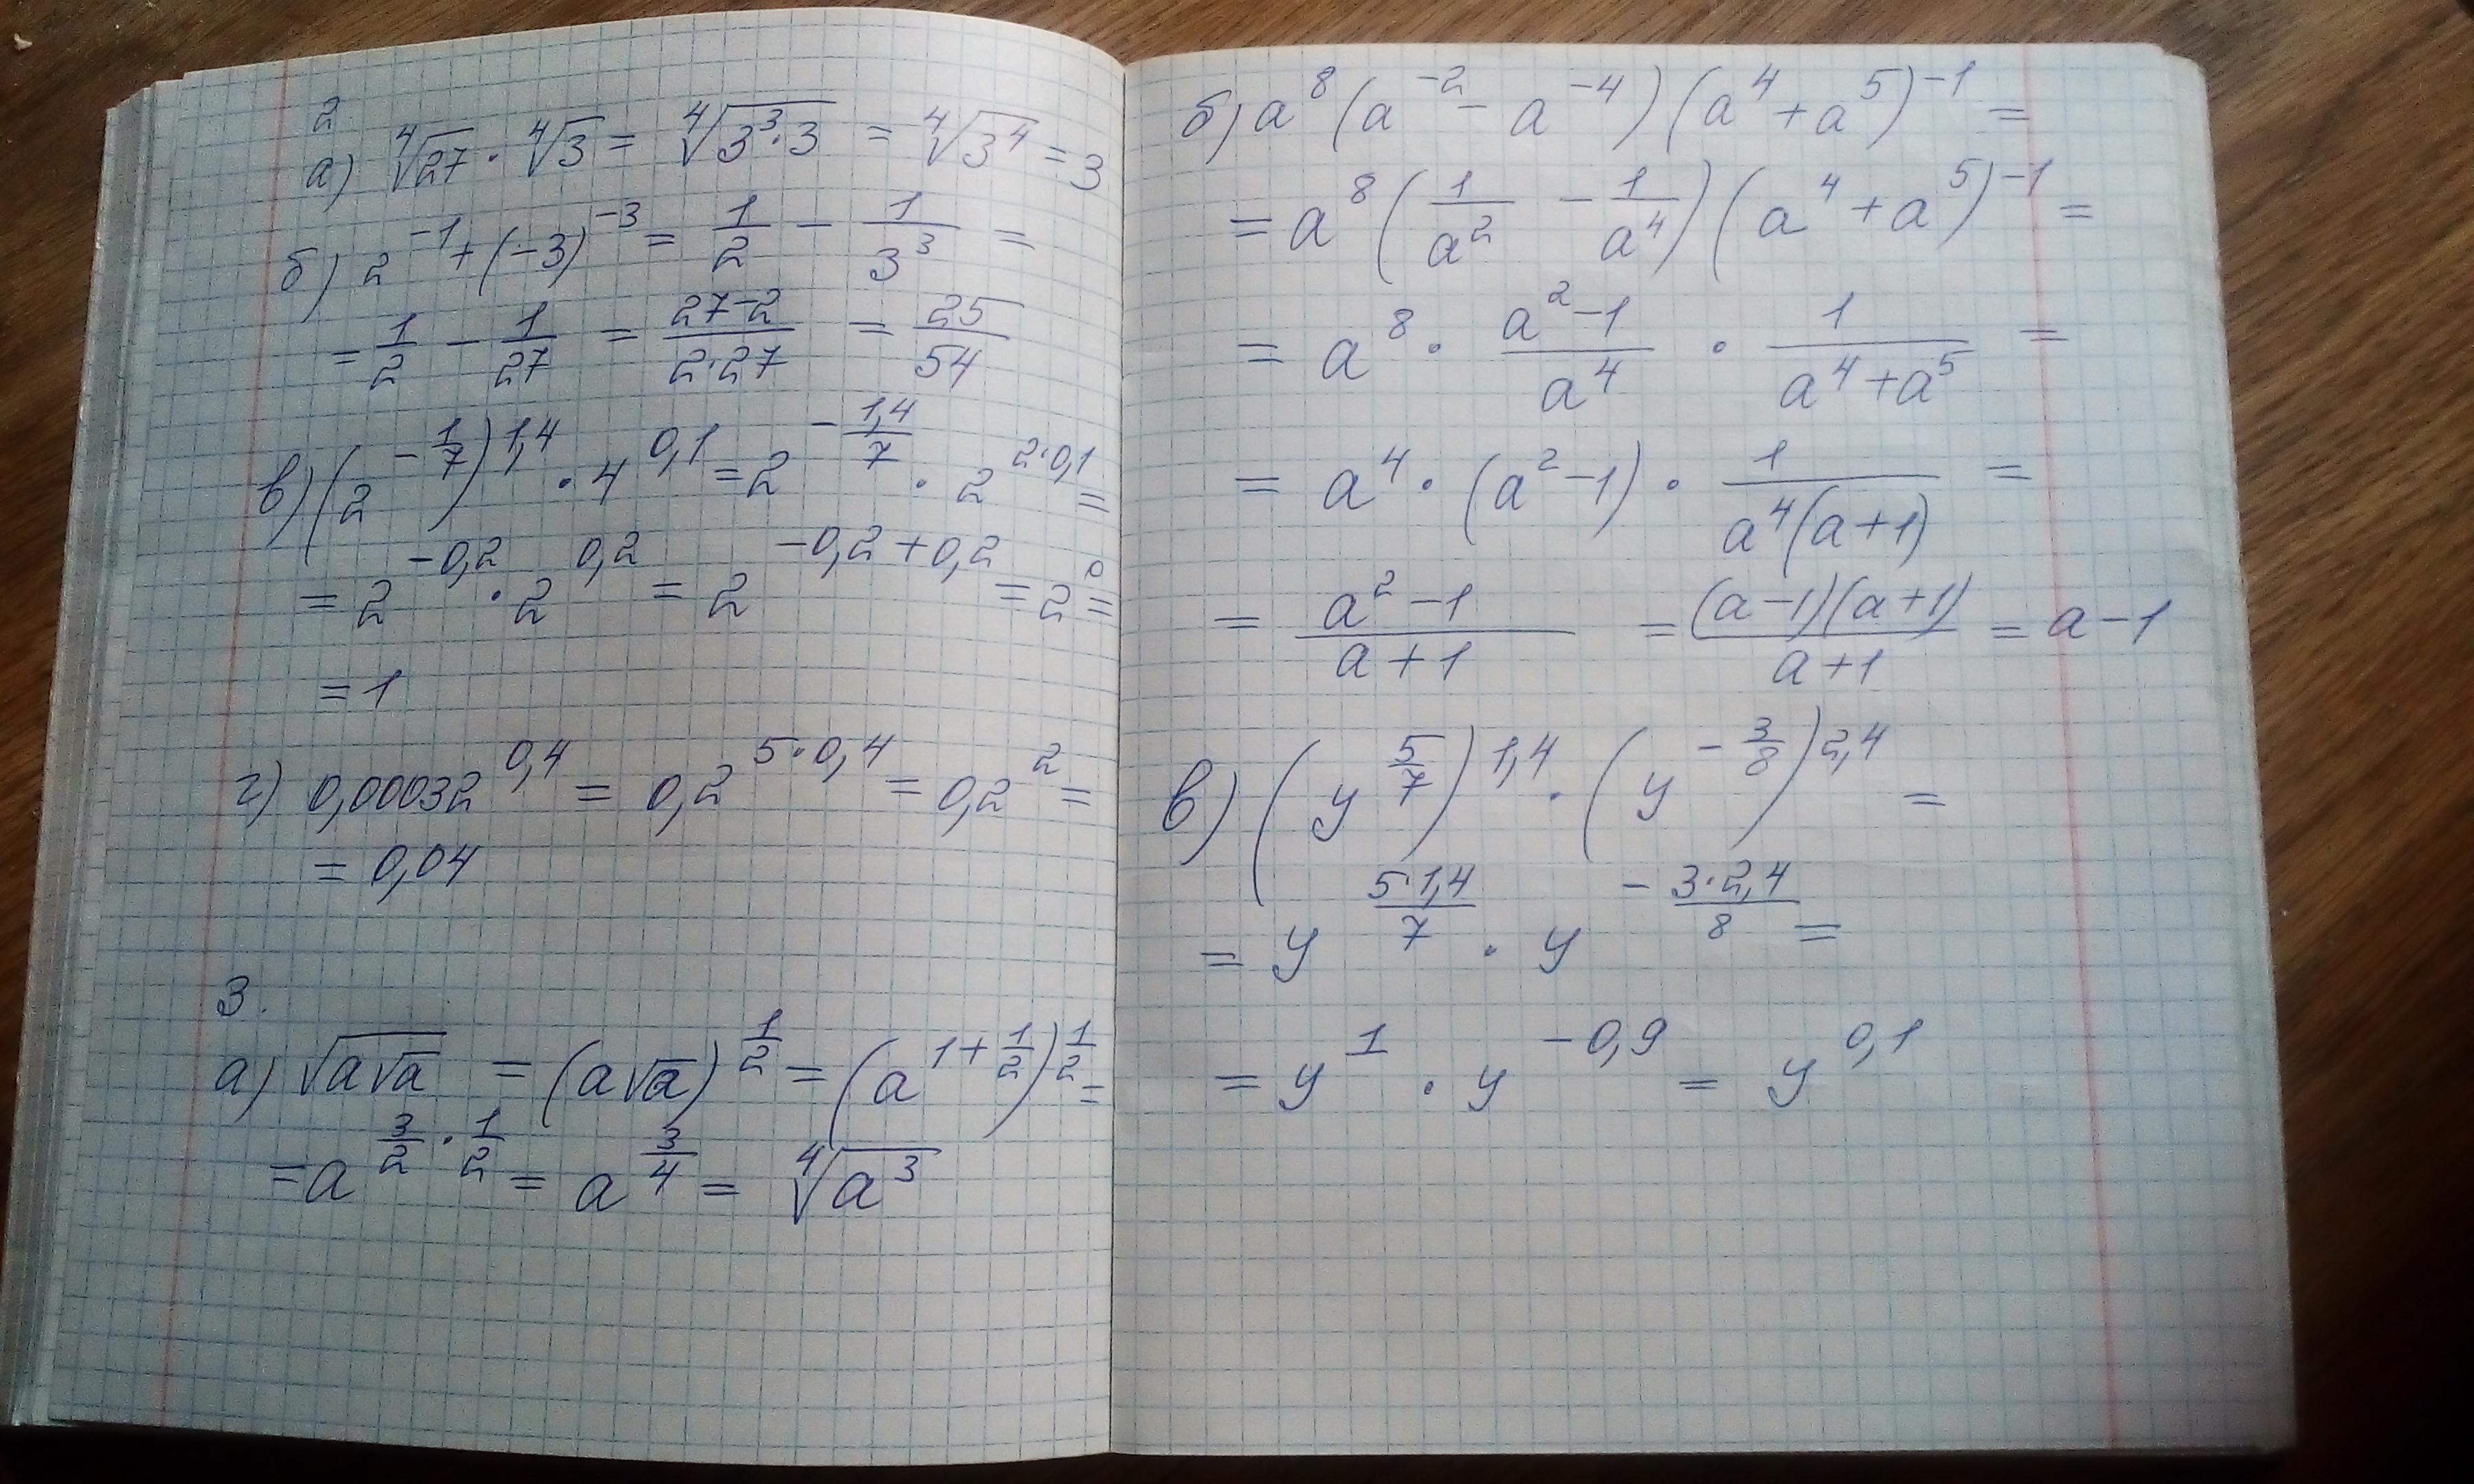 2
а) ⁴√27 · ⁴√3 = ⁴√(3³·3) = ⁴√(3⁴) = 3
б) 2^(-1) + (-3)^(-3) = 1/2 - 1/3³ =
= 1/2 - 1/27 = (27-2)/(2·27) = 25/54
в) (2^(-1/7))^(1,4) · 4^(0,1) = 2^(-1,4/7) · 2^(2·0,1) =
= 2^(-0,2) · 2^(0,2) = 2^(-0,2+0,2) = 2⁰ =
= 1
г) 0,00032^(0,4) = 0,2^(5·0,4) = 0,2² =
= 0,04
3.
а) √(a√a) = (a√a)^(1/2) = (a^(1+1/2))^(1/2) =
= a^(3/2·1/2) = a^(3/4) = ⁴√(a³)
б) a⁸(a^(-2) - a^(-4))(a⁴+a⁵)^(-1) =
= a⁸(1/a² - 1/a⁴)(a⁴+a⁵)^(-1) =
= a⁸ · (a²-1)/a⁴ · 1/(a⁴+a⁵) =
= a⁴ · (a²-1) · 1/(a⁴(a+1)) =
= (a²-1)/(a+1) = ((a-1)(a+1))/(a+1) = a-1
в) (y^(5/7))^(1,4) · (y^(-3/8))^(2,4) =
= y^(5·1,4/7) · y^(-3·2,4/8) =
= y¹ · y^(-0,9) = y^(0,1)